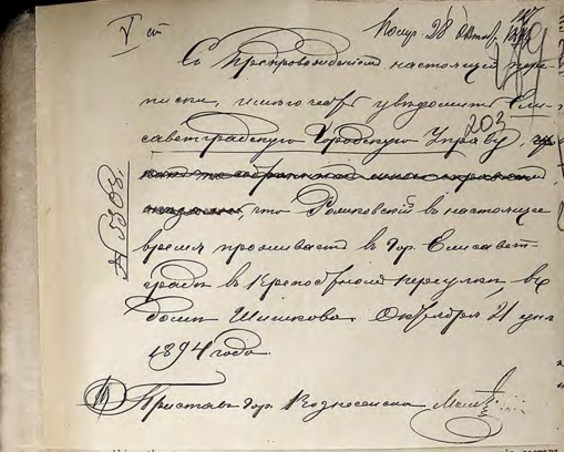 V ст
Получ. 28 Октяб. 1894
Съ препровожденіемъ настоящей пере-
писки, имѣю честь увѣдомить Ели-
203
саветградскую Городскую Управу,
что Ромковскій въ настоящее
время проживаетъ въ гор. Елисавет-
градѣ въ Крѣпостномъ переулкѣ, въ
домѣ Шишкова. Октября 21 дня
1894 года.
№ 5308.
Приставъ гор. Вознесенска